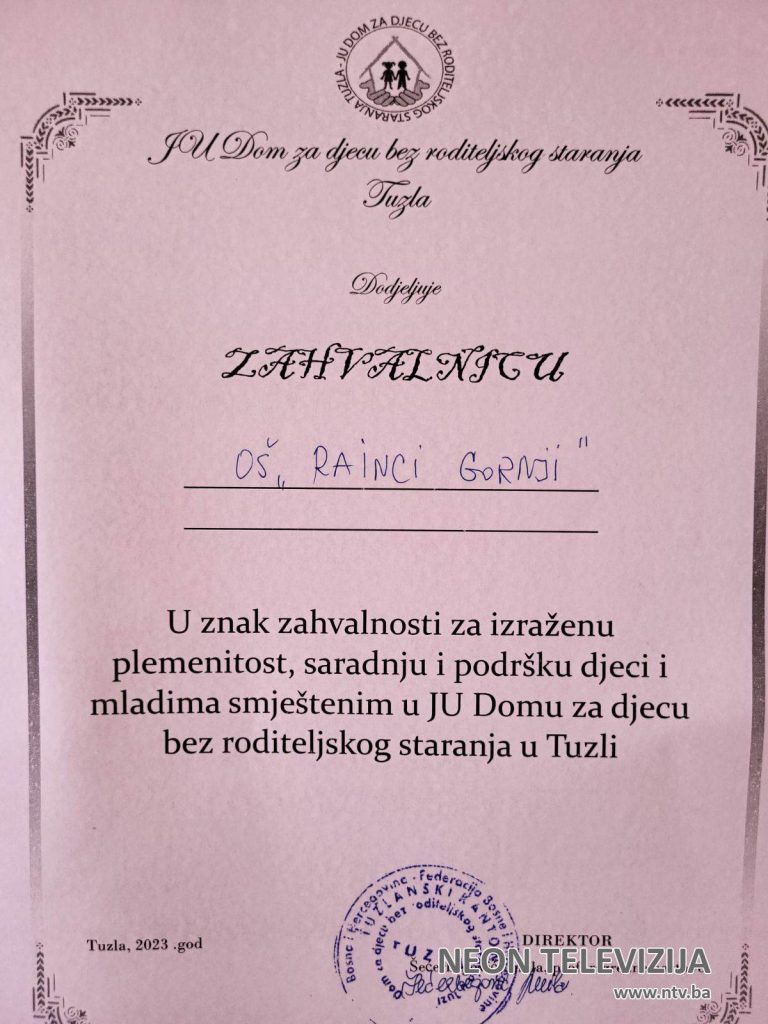 JU DOM ZA DJECU BEZ RODITELJSKOG STARANJA TUZLA -
JU Dom za djecu bez roditeljskog staranja
Tuzla
Dodjeljuje
ZAHVALNICU
OŠ „ RAINCI GORNJI "
U znak zahvalnosti za izraženu
plemenitost, saradnju i podršku djeci i
mladima smještenim u JU Domu za djecu
bez roditeljskog staranja u Tuzli
Bosna i Hercegovina - Federacija Bosne i
TUZLANSKI KANTON
Dom za djecu bez roditeljskog
Tuzla, 2023 .god
DIREKTOR
NEON TELEVIZIJA
www.ntv.ba